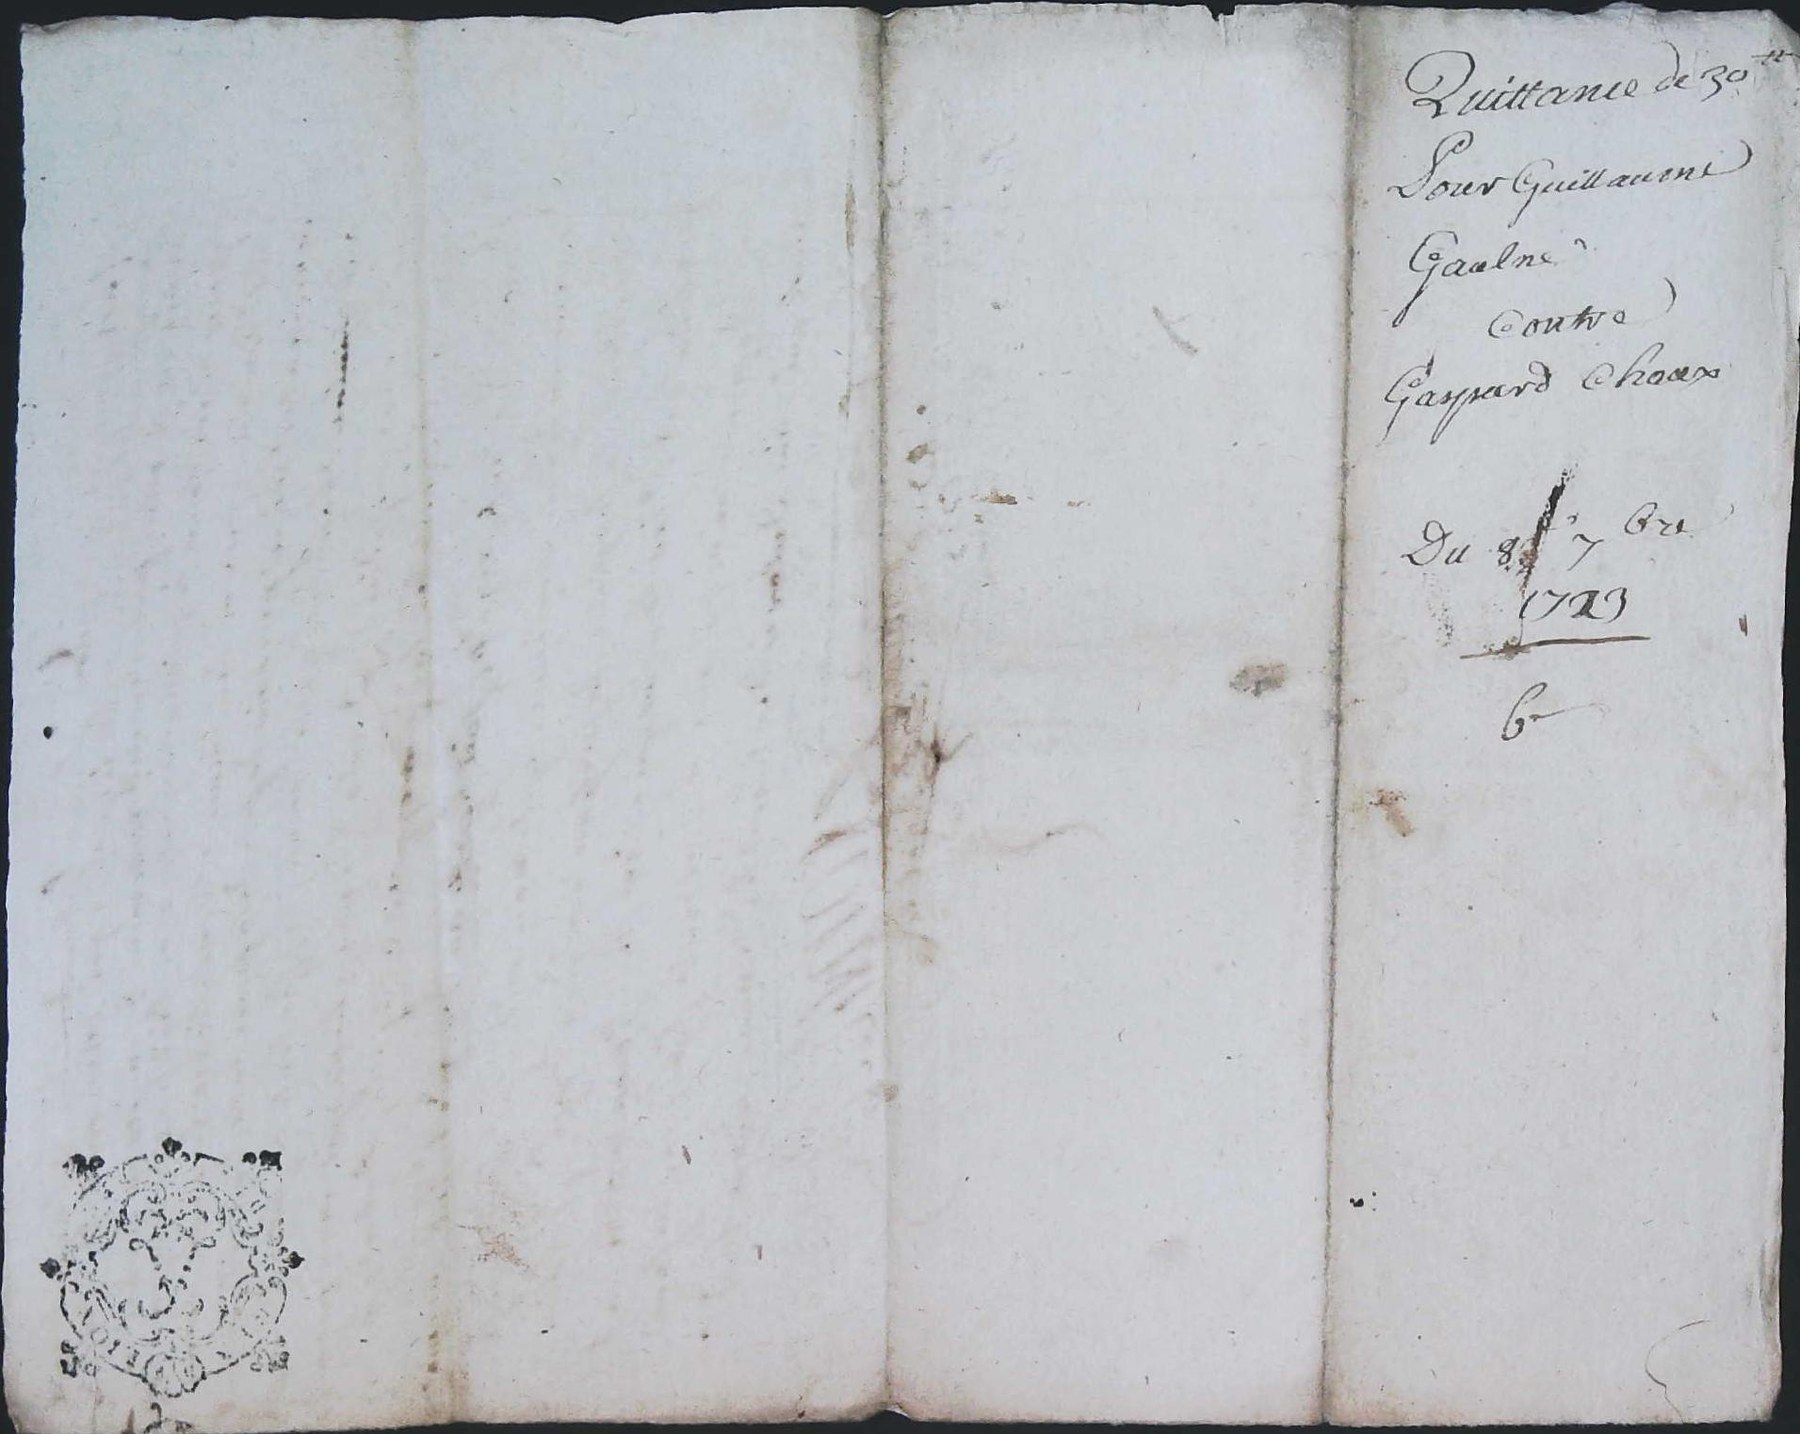 Quittance de 30 ₶
Pour Guillaume
Gaulne
Contre
Gaspard Chaux
Du 8 7bre
1723